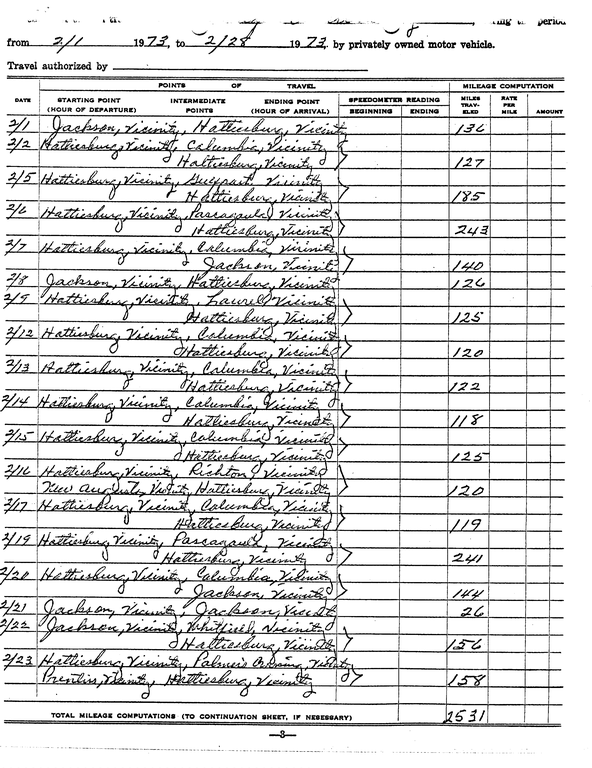 from 2/1 1973, to 2/28 1973, by privately owned motor vehicle.
Travel authorized by
POINTS OF TRAVEL MILEAGE COMPUTATION
DATE STARTING POINT (HOUR OF DEPARTURE) INTERMEDIATE POINTS ENDING POINT (HOUR OF ARRIVAL) SPEEDOMETER READING BEGINNING ENDING MILES TRAV-ELED RATE PER MILE AMOUNT
2/1 Jackson, Vicinity, Hattiesburg, Vicinity 136
2/2 Hattiesburg, Vicinity, Columbia, Vicinity
Hattiesburg, Vicinity 127
2/5 Hattiesburg, Vicinity, Gulfport, Vicinity
Hattiesburg, Vicinity 185
2/6 Hattiesburg, Vicinity, Pascagoula, Vicinity
Hattiesburg, Vicinity 243
2/7 Hattiesburg, Vicinity, Columbia, Vicinity
Jackson, Vicinity 140
2/8 Jackson, Vicinity, Hattiesburg, Vicinity 126
2/9 Hattiesburg, Vicinity, Laurel, Vicinity
Hattiesburg, Vicinity 125
2/12 Hattiesburg, Vicinity, Columbia, Vicinity
Hattiesburg, Vicinity 120
2/13 Hattiesburg, Vicinity, Columbia, Vicinity
Hattiesburg, Vicinity 122
2/14 Hattiesburg, Vicinity, Columbia, Vicinity
Hattiesburg, Vicinity 118
2/15 Hattiesburg, Vicinity, Columbia, Vicinity
Hattiesburg, Vicinity 125
2/16 Hattiesburg, Vicinity, Richton, Vicinity
New Augusta, Vicinity, Hattiesburg, Vicinity 120
2/17 Hattiesburg, Vicinity, Columbia, Vicinity
Hattiesburg, Vicinity 119
2/19 Hattiesburg, Vicinity, Pascagoula, Vicinity
Hattiesburg, Vicinity 241
2/20 Hattiesburg, Vicinity, Columbia, Vicinity
Jackson, Vicinity 144
2/21 Jackson, Vicinity, Jackson, Vicinity 26
2/22 Jackson, Vicinity, Whitfield, Vicinity
Hattiesburg, Vicinity 156
2/23 Hattiesburg, Vicinity, Palmers Vicinity
Prentiss, Vicinity, Hattiesburg, Vicinity 158
TOTAL MILEAGE COMPUTATIONS (TO CONTINUATION SHEET, IF NESESSARY) 2531
—3—